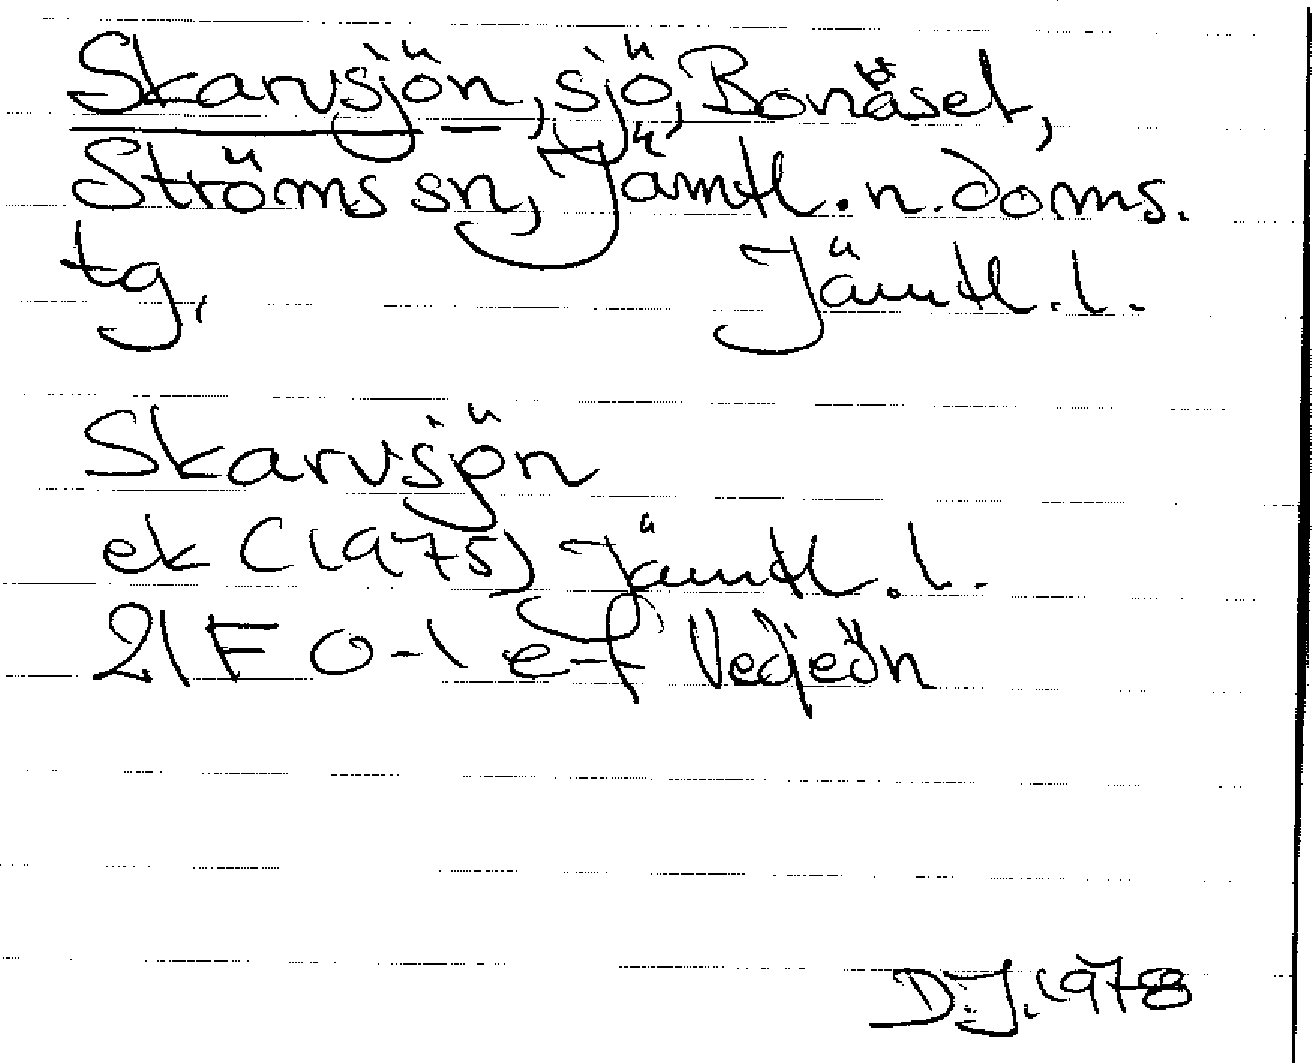 Skarvsjön, sjö, Bonäset,
Ströms sn, Jämtl. n. doms.
tg, Jämtl. l.
Skarvsjön
ek C (1975) Jämtl. l.
21F 0-1 e-f
D.J. 1978